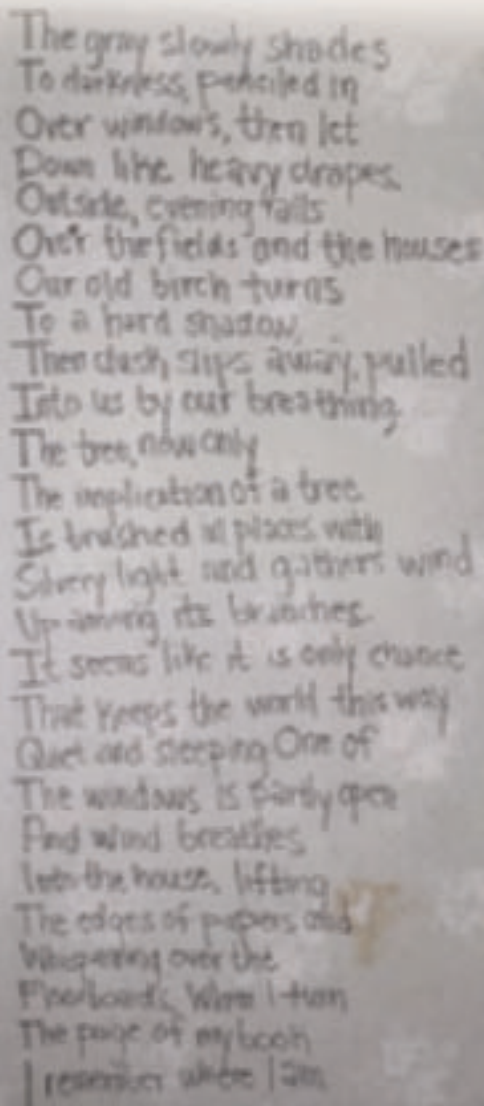 The gray slowly shades
To darkness, penciled in
Over windows, then let
Down like heavy drapes.
Outside, evening falls
Over the fields and the houses
Our old birch turns
To a hard shadow.
Then dusk slips away, pulled
Into us by our breathing.
The tree, now only
The implication of a tree
Is brushed in places with
Silvery light and gathers wind
Up among its branches.
It seems like it is only chance
That keeps the world this way
Quiet and sleeping One of
The windows is partly open
And wind breathes
Into the house, lifting
The edges of papers and
Whispering over the
Floorboards. When I turn
The page of my book
I remember where I am